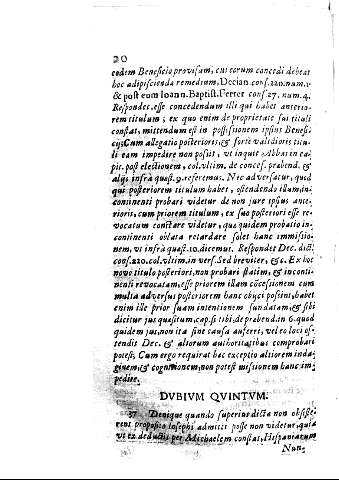 20
eodem Beneficio provisam, cui eorum concedi debeat
hoc adipiscenda remedium, Decian. cons. 220. num. 1.
& post eum Ioann. Baptist. Ferret cons. 27. num. 4.
Respondet, esse concedendum illi qui habet anterio-
rem titulum; ex quo enim de proprietate sui tituli
constat, mittendum est in possessionem ipsius Benefi-
cij; Cum allegatio posterioris, & forte validioris titu-
li eam impedire non possit, ut inquit Abbas in ca-
pit. post electionem, col. ultim. de concess. prabend. &
alijs infra quæst. 9. referemus. Nec adversatur, quod
qui posteriorem titulum habet, ostendendo illum, in-
continenti probari videtur de non jure ipsius ante-
rioris, cum priorem titulum, ex suo posteriori esse re-
vocatum constare videtur, qua quidem probatio in-
continenti oblata retardare solet hanc immissio-
nem, ut infra quæst. 10. dicemus. Respondet Dec. dict.
cons. 220. col. ultim. in vers. Sed breviter, & 6. Ex hoc
novo titulo posteriori, non probari statim, & inconti-
nenti revocatam, esse priorem illam cōcessionem cum
multa adversus posteriorem hanc objici possint, habet
enim ille prior suam intentionem fundatam, & sibi
dicitur jus quæsitum, cap. si tibi, de prabend. in 6. quod
quidem jus, non ita sine causa auferri, vel eo loci os-
tendit Dec. & aliorum authoritatibus comprobari
potest, Cum ergo requirat hæc exceptio altiorem inda-
ginem, & cognitionem, non potest missionem hanc im-
pedire.
DVBIVM QVINTVM.
37 Denique quando superius dicta non obsiste-
rent proposito Iosephi admitti posse non videtur, quia
ut ex deductis per Michaelem constat, Hispaniarum
Nun-